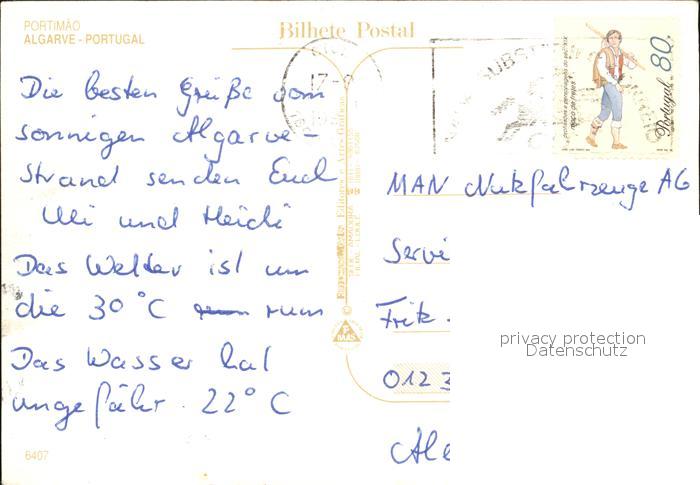 PORTIMÃO
ALGARVE - PORTUGAL
Bilhete Postal
Die besten Grüße vom
sonnigen Algarve-
Strand senden Euch
Uli und Heidi
Das Wetter ist um
die 30 °C rum
Das Wasser hat
ungefähr 22° C
6407
Portugal 80
MAN Nutzfahrzeuge AG
Servi
Fritz.
0123
Ale
privacy protection
Datenschutz